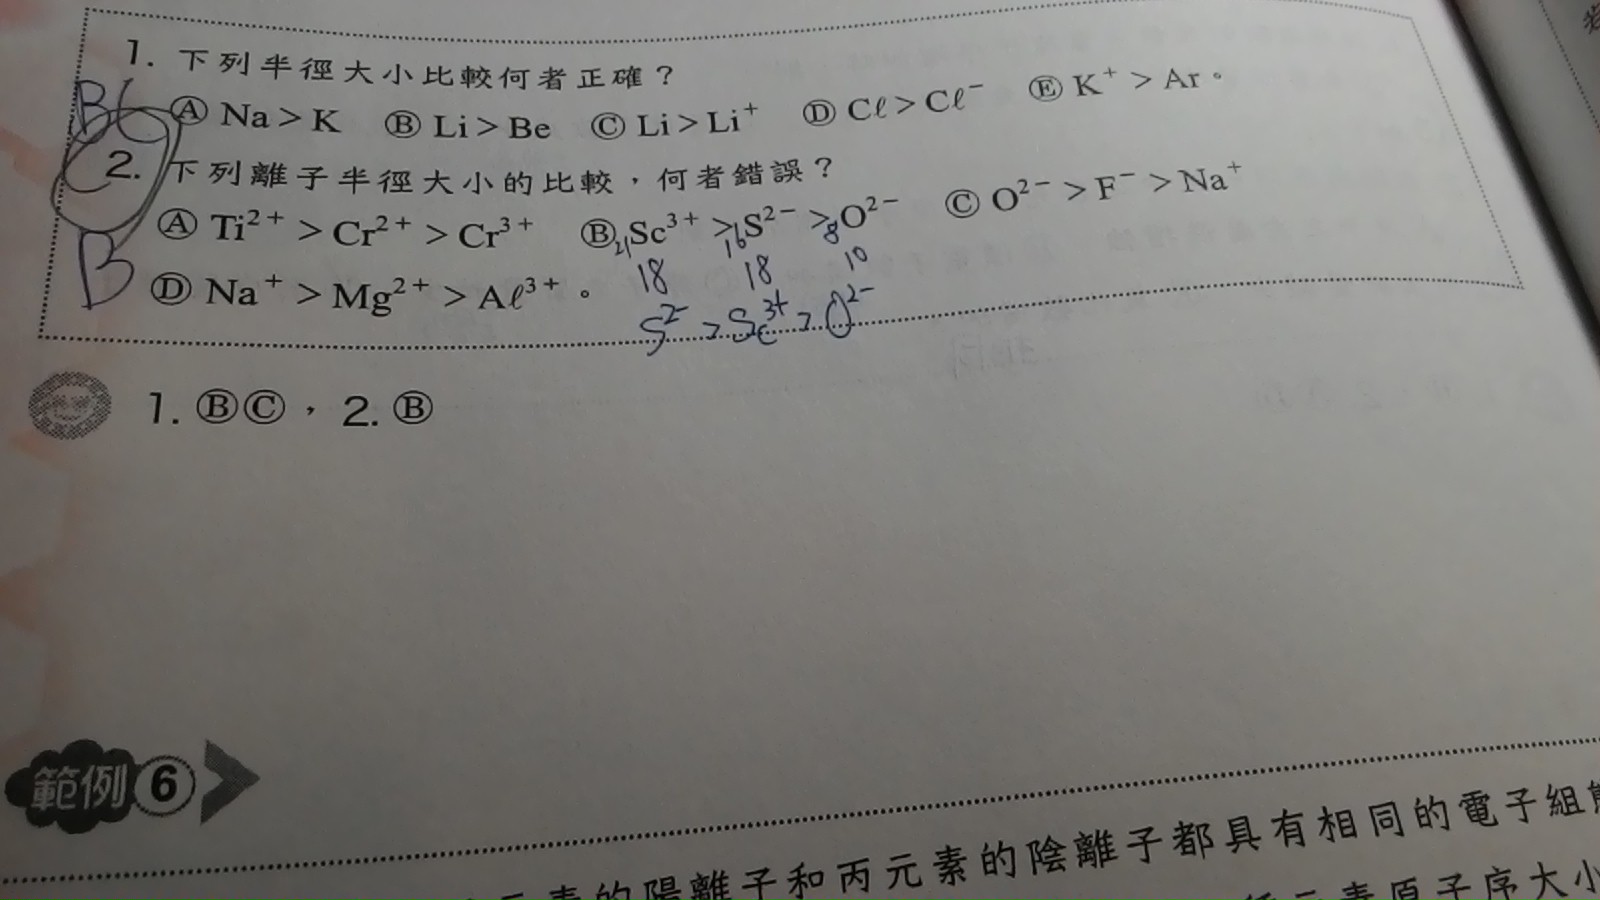 1. 下列半徑大小比較何者正確？
BC Ⓐ Na > K Ⓑ Li > Be Ⓒ Li > Li⁺ Ⓓ Cℓ > Cℓ⁻ Ⓔ K⁺ > Ar。
2. 下列離子半徑大小的比較，何者錯誤？
Ⓐ Ti²⁺ > Cr²⁺ > Cr³⁺ Ⓑ ₂₁Sc³⁺ > ₁₆S²⁻ > ₈O²⁻ Ⓒ O²⁻ > F⁻ > Na⁺
18 18 10
B Ⓓ Na⁺ > Mg²⁺ > Aℓ³⁺。
S²⁻ > Sc³⁺ > O²⁻
1. ⒷⒸ，2. Ⓑ
範例6
元素的陽離子和丙元素的陰離子都具有相同的電子組
元素原子序大小